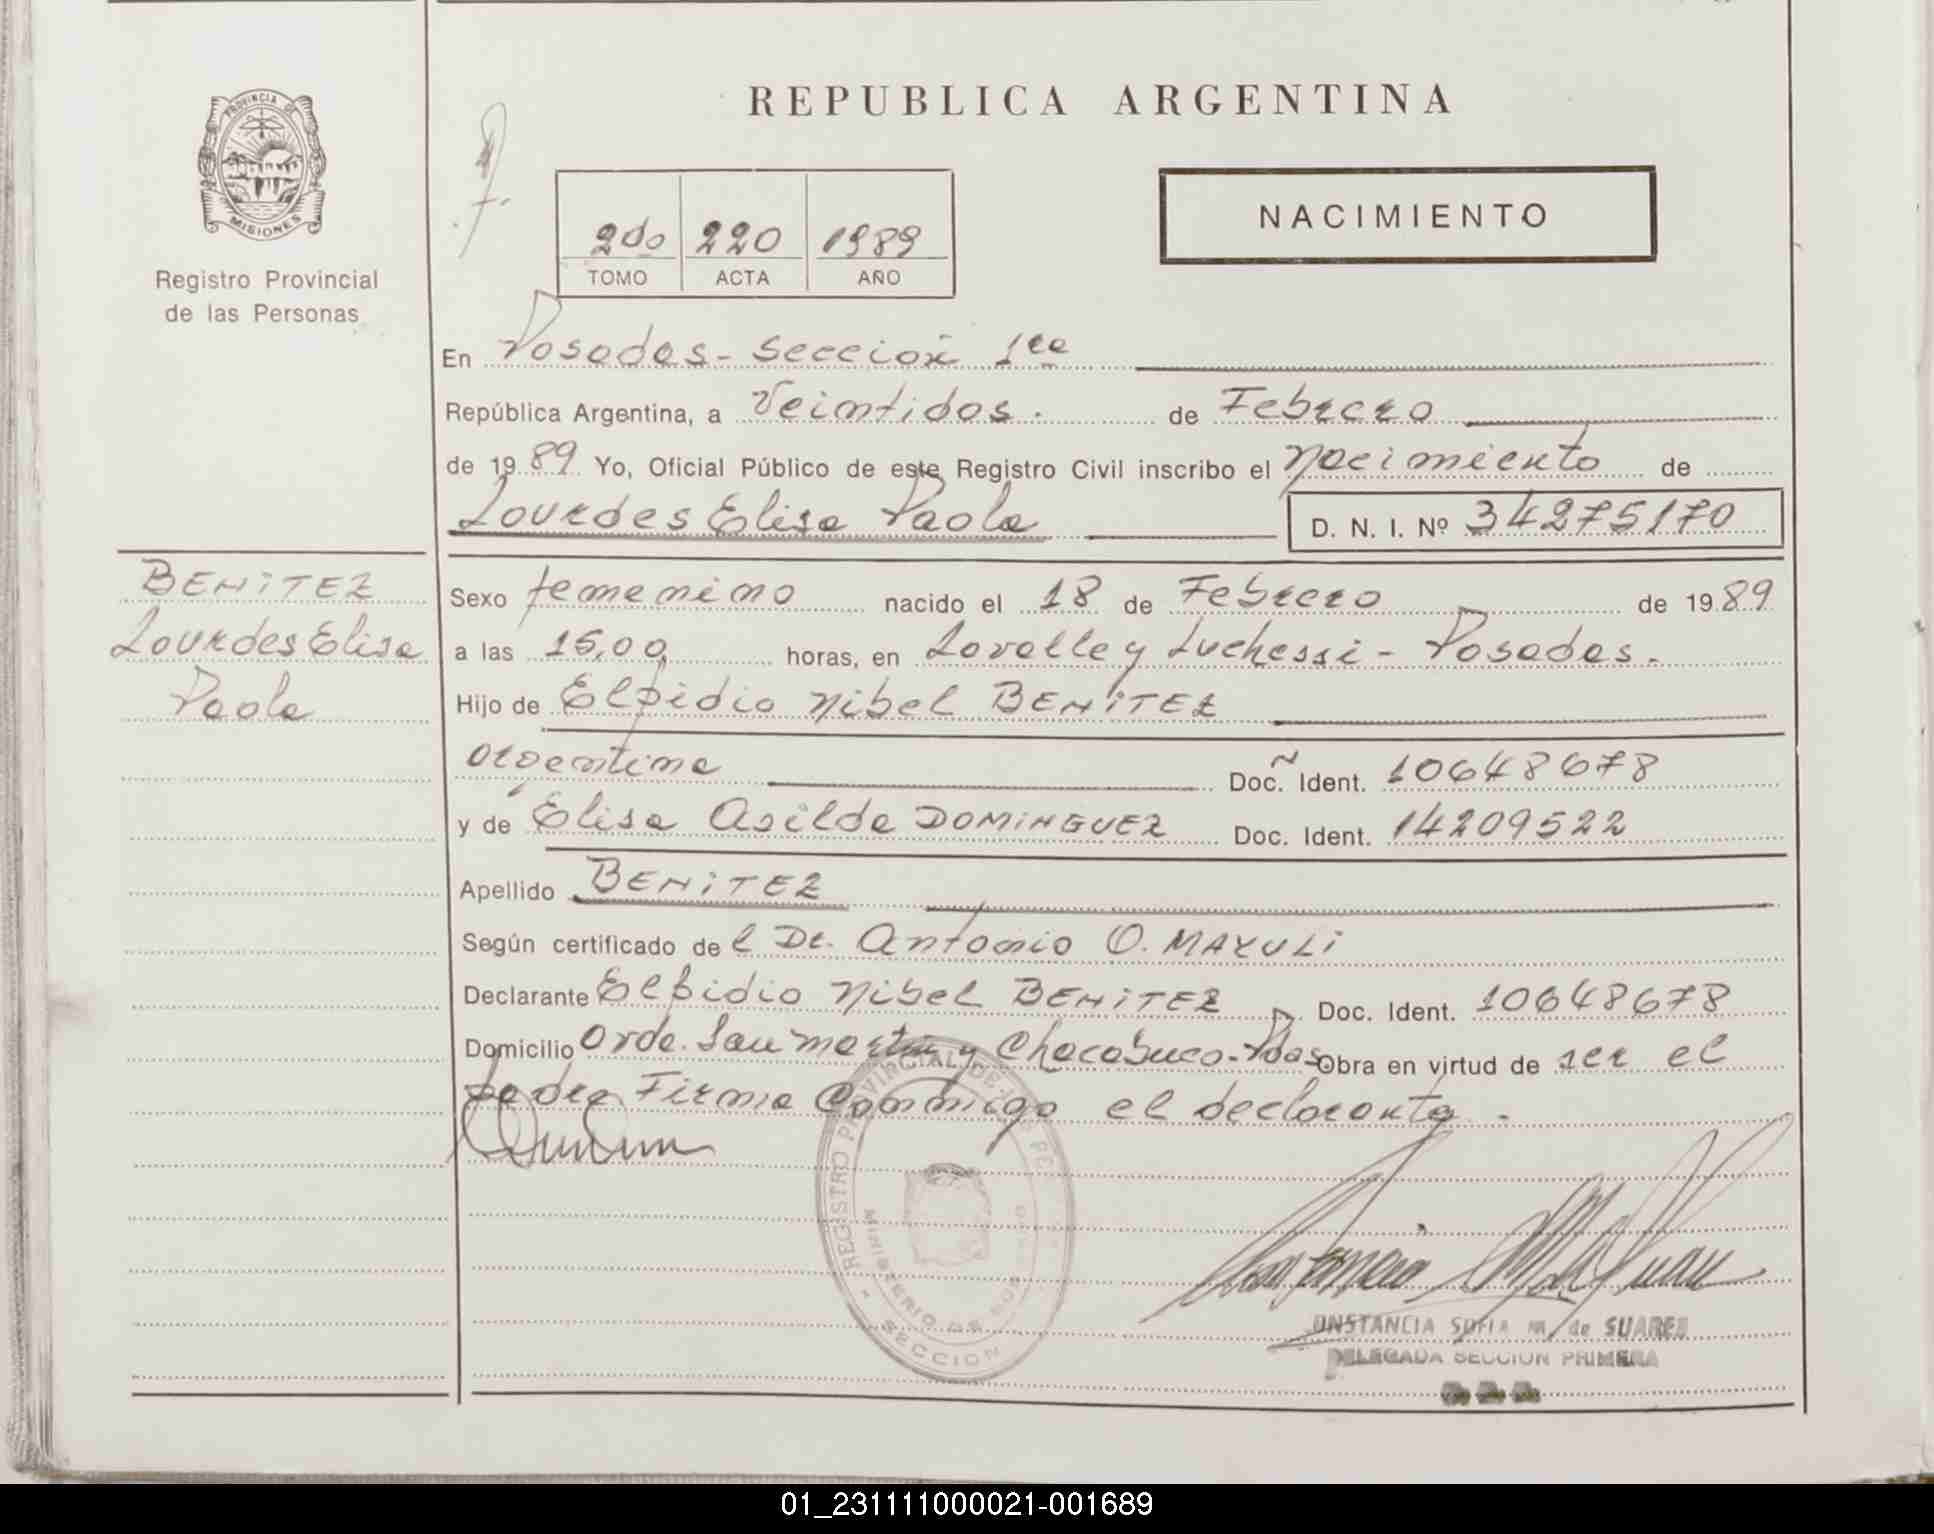 PROVINCIA DE
MISIONES
Registro Provincial
de las Personas
REPUBLICA ARGENTINA
NACIMIENTO
2do 220 1989
TOMO ACTA AÑO
En Posadas - Sección 1ra
República Argentina, a Veintidos. de Febrero
de 1989 Yo, Oficial Público de este Registro Civil inscribo el Nacimiento de
Lourdes Elisa Paola D. N. I. Nº 34275170
BENiTEZ
Lourdes Elisa
Paola
Sexo femenino nacido el 18 de Febrero de 1989
a las 15,00 horas, en Lavalle y Luchessi - Posadas.
Hijo de Elpidio Nibel BENiTEZ
Argentina Doc. Ident. 10648678
y de Elisa Asilda DOMiNGUEZ Doc. Ident. 14209522
Apellido BENiTEZ
Según certificado del Dr. Antonio O. MAZULi
Declarante Elpidio Nibel BENiTEZ Doc. Ident. 10648678
Domicilio Avda. San Martin y Chacabuco - Pdas Obra en virtud de ser el
padre Firma Conmigo el declarante.
REGISTRO PROVINCIAL DE
MINISTERIO DE
SECCION
CONSTANCIA SOFIA M. de SUAREZ
DELEGADA SECCION PRIMERA
01_231111000021-001689